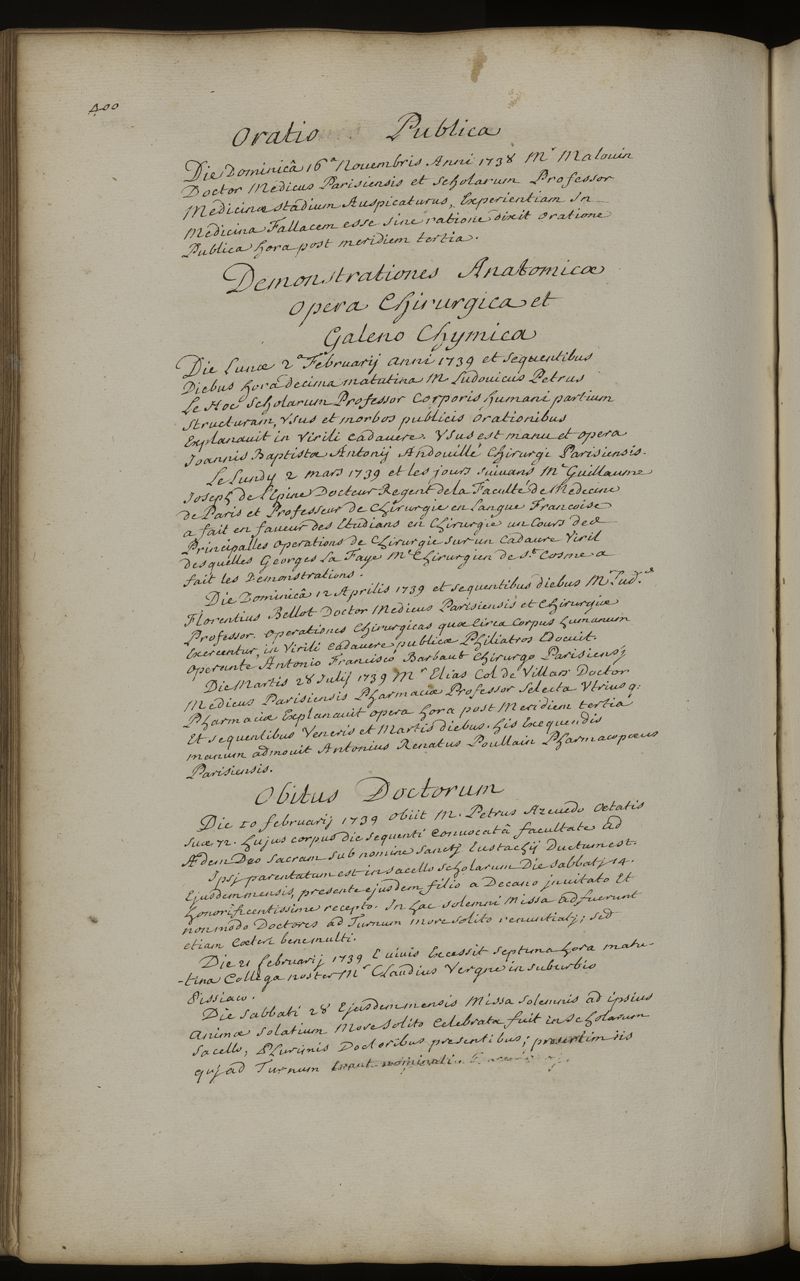 400
Oratio Publica
Die Dominicâ 16.a Novembris Anni 1738 Mr Malouin
Doctor Medicus Parisiensis et Scholarum Professor
Medicinæ stadium Auspicaturus, Experientiam In
Medicina Fallacem esse sine ratione dixit oratione
Publica hora post meridiem tertia.
Demonstrationes Anatomicæ
Opera Chirurgica et
Galeno Chymica
Die Lunæ 2a Februarij anni 1739 et sequentibus
Diebus hora decima matutina M Ludovicus Petrus
Le Hoc Scholarum Professor Corporis humani partium
Structuram, Usus et morbos publicis orationibus
Explanavit in Virili cadavere. Usus est manu et opera
Joannis Baptistæ Antonij Andouillé Chirurgi Parisiensis.
Le Lundy 2 mars 1739 et les jours suivans Mr Guillaume
Joseph de L'Epine Docteur Regent de la Faculté de Medecine
de Paris et Professeur de Chirurgie en Langue Francoise
a fait en faveur des Etudians en Chirurgie un Cours des
Principalles operations de Chirurgie sur un Cadavre Viril
desquelles Georges La Faye Me Chirurgien de St Cosme a
fait les Demonstrations.
Die Dominicâ 12 Aprilis 1739 et sequentibus diebus Mr Lud.
Florentius Bellot Doctor Medicus Parisiensis et Chirurgiæ
Professor. operationes Chirurgicas quæ Circa Corpus humanum
Exercentur, in Virili Cadavere publicæ Philiatros Edocuit.
Operante Antonio Francisco Barbaut Chirurgo Parisiensj
Die Martis 28 Julij 1739 Mr Elias Col de Villars Doctor
Medicus Parisiensis Pharmaciæ Professor Selecta Utriusq:
Pharmaciæ Explanavit opera hora post Meridiem tertia
Et sequentibus Veneris et Martis diebus. his Exequendis
manum admovit Antonius Renatus Poullain Pharmacopœus
Parisiensis.
Obitus Doctorum
Die 10 februarij 1739 obiit M. Petrus Azevedo Ætatis
suæ 72. hujus corpus die sequenti Convocatâ facultate ad
Ædem Deo Sacram sub nomine Sanctj Eustachij Ductum est.
Ipsj parentatum est in sacello scholarum Die sabbatj 14.
Ejusdem mensis, presente ejusdem filio a Decano jnvitato Et
honorificentissime recepto. In hac solemni missa adfuerunt
non modo Doctores ad Turnum more solito renuntiatj; sed
etiam Cœteri bene multi.
Die 21 februarij 1739 E vivis Excessit septima hora matu-
-tina Collega noster Mr Claudius Vergne in suburbio
Pissiaco.
Die Sabbati 28 Ejusdem mensis Missa Solemnis ad ipsius
animæ Solatium More Solito Celebrata fuit in Scholarum
Sacello, Plurimis Doctoribus presentibus; presertim iis
quj ad Turnum